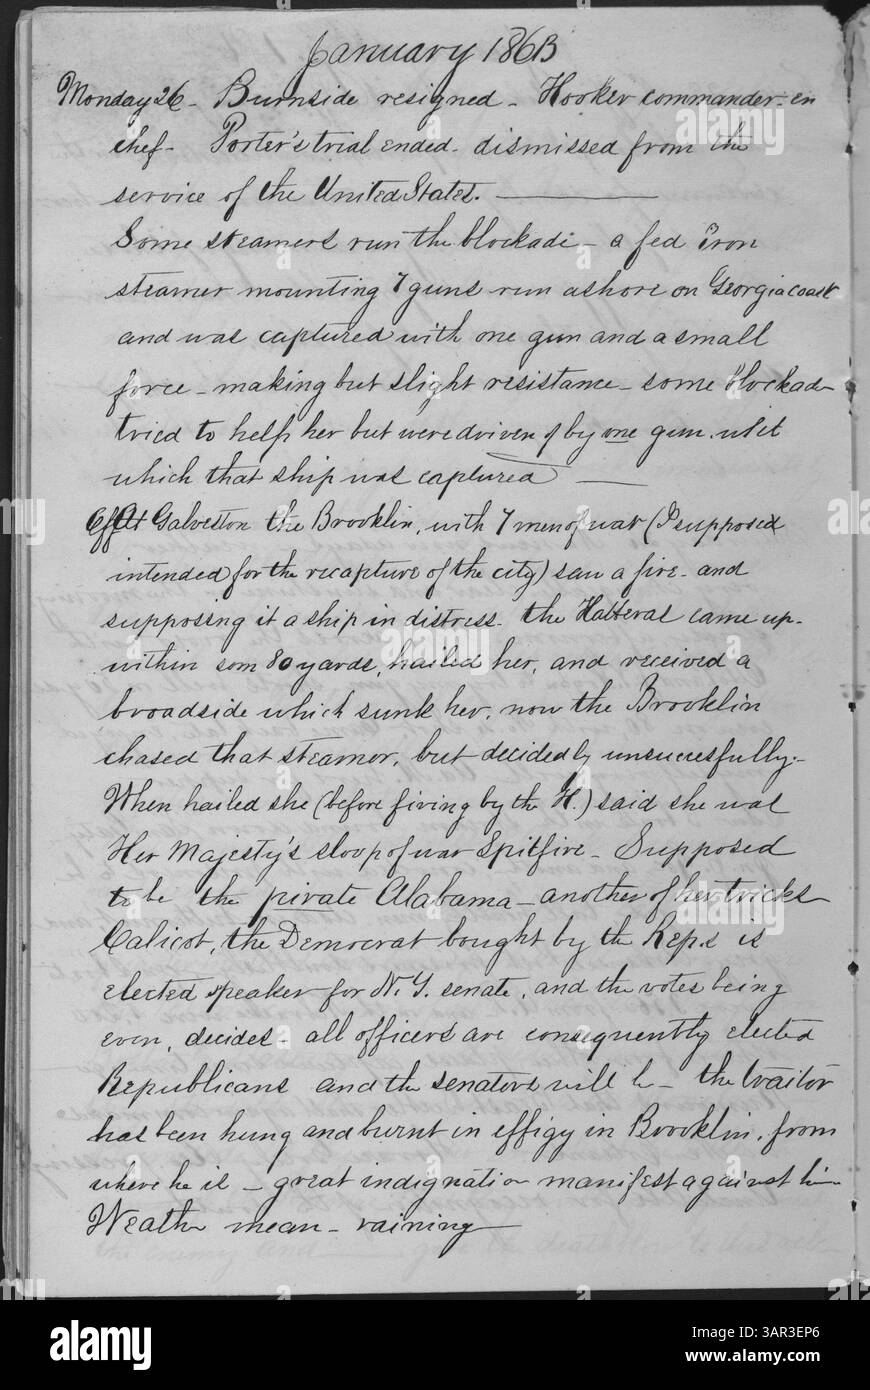 January 1863
Monday 26 - Burnside resigned - Hooker commander-en
chef - Porter's trial ended - dismissed from the
service of the United States.
Some steamers run the blockade - a fed Iron
steamer mounting 7 guns run ashore on Georgia coast
and was captured with one gun and a small
force - making but slight resistance - some blockade
tried to help her but were driven of by one gun
which that ship was captured
Off At Galveston the Brooklin, with 7 men of war (I supposed
intended for the recapture of the city) saw a fire - and
supposing it a ship in distress - the Hatteras came up -
within som 80 yards, hailed her, and received a
broadside which sunk her, now the Brooklin
chased that steamor, but decidedly unsuccesfully -
When hailed she (before firing by the H.) said she was
Her Majesty's sloop of war Spitfire - Supposed
to be the private Alabama - another of her tricks
Calicot, the Democrat bought by the Reps is
elected speaker for N.Y. senate, and the votes being
even, decides - all officers are consequently elected
Republicans and the senators will be - the traitor
has been hung and burnt in effigy in Brooklin, from
where he is - great indignation manifest against him
Weather mean - raining
alamy
a
alamy
Image ID: 3AR3EP6
www.alamy.com